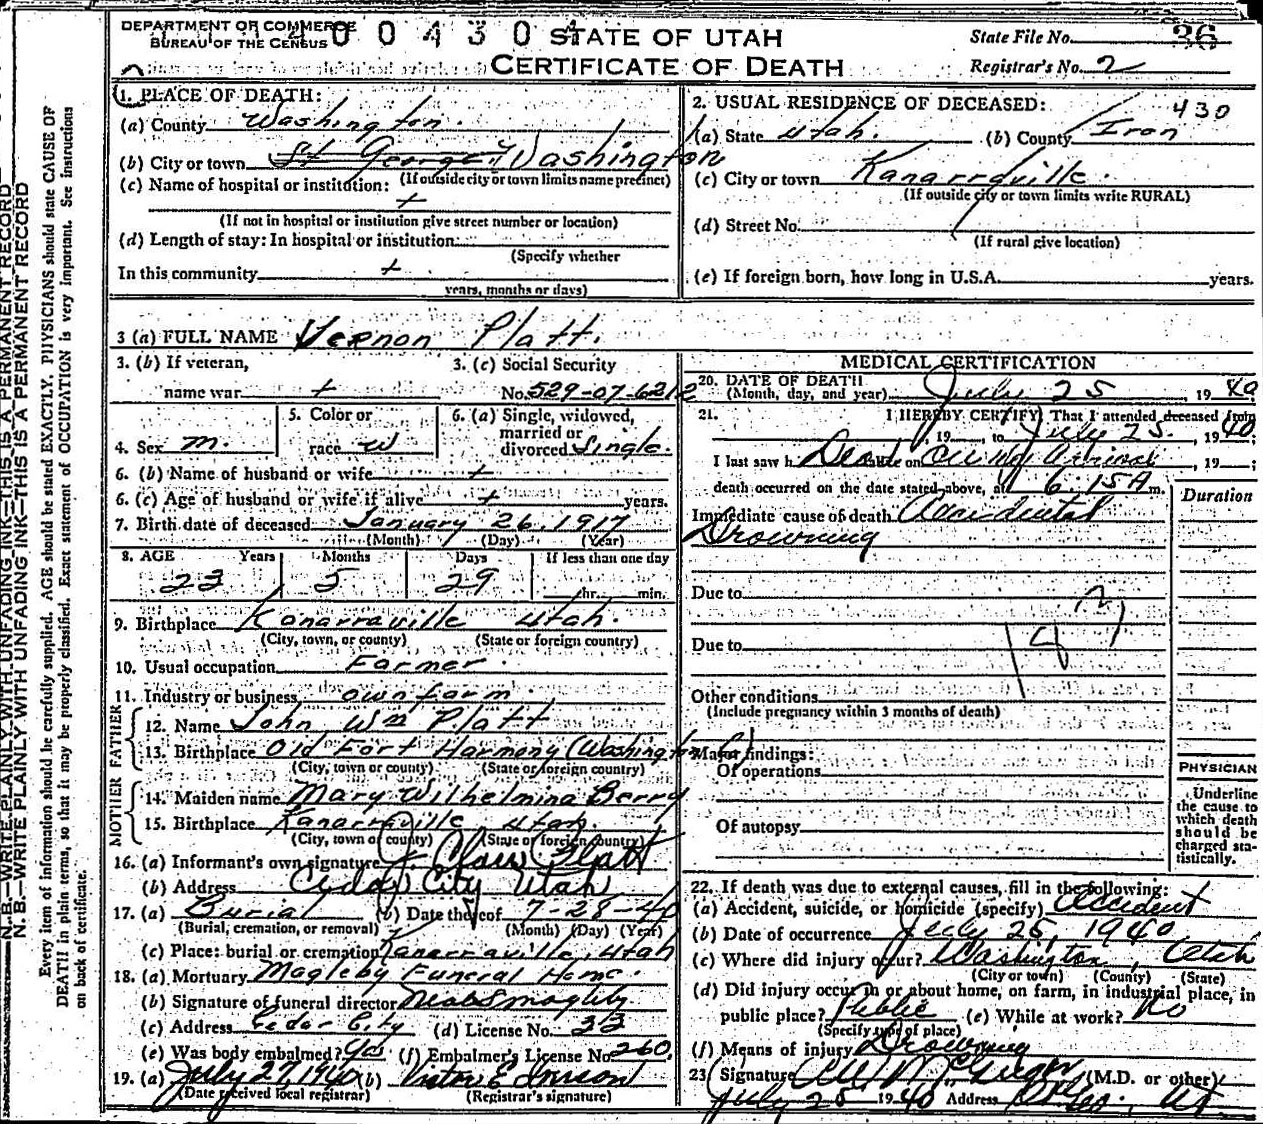 DEPARTMENT OF COMMERCE
BUREAU OF THE CENSUS
0 0 4 3 0
STATE OF UTAH
CERTIFICATE OF DEATH
State File No. 36
Registrar's No. 2
1. PLACE OF DEATH:
(a) County Washington
(b) City or town St George Washington
(If outside city or town limits name precinct)
(c) Name of hospital or institution:
+
(If not in hospital or institution give street number or location)
(d) Length of stay: In hospital or institution
(Specify whether
In this community +
years, months or days)
2. USUAL RESIDENCE OF DECEASED: 430
(a) State Utah. (b) County Iron
(c) City or town Kanarraville.
(If outside city or town limits write RURAL)
(d) Street No.
(If rural give location)
(e) If foreign born, how long in U.S.A. years.
3 (a) FULL NAME Vernon Platt.
3. (b) If veteran,
name war +
3. (c) Social Security
No. 529-07-6212
4. Sex m.
5. Color or
race w
6. (a) Single, widowed,
married or
divorced Single.
6. (b) Name of husband or wife +
6. (c) Age of husband or wife if alive + years.
7. Birth date of deceased January 26, 1917
(Month) (Day) (Year)
8. AGE Years Months Days If less than one day
23 5 29 hr. min.
9. Birthplace Kanarraville Utah.
(City, town, or county) (State or foreign country)
10. Usual occupation Farmer
11. Industry or business own farm
FATHER
12. Name John Wm Platt
13. Birthplace Old Fort Harmony (Washington
(City, town or county) (State or foreign country)
MOTHER
14. Maiden name Mary Wilhelmina Berry
15. Birthplace Kanarraville Utah.
(City, town or county) (State or foreign country)
16. (a) Informant's own signature Platt
(b) Address Cedar City Utah
17. (a) Burial (b) Date thereof 7-28-40
(Burial, cremation, or removal) (Month) (Day) (Year)
(c) Place: burial or cremation Kanarraville, Utah
18. (a) Mortuary Magleby Funeral Home.
(b) Signature of funeral director
(c) Address Cedar City (d) License No. 33
(e) Was body embalmed? Yes (f) Embalmer's License No. 260
19. (a) July 27, 1940 (b) Victor E
(Date received local registrar) (Registrar's signature)
MEDICAL CERTIFICATION
20. DATE OF DEATH
(Month, day, and year) July 25, 1940
21. I HEREBY CERTIFY, That I attended deceased from
, 19 , to July 25, 1940;
I last saw h Dead alive on Arrival, 19 ;
death occurred on the date stated above, at 6 15 A m.
Duration
Immediate cause of death Accidental
Drowning
Due to
Due to
Other conditions
(Include pregnancy within 3 months of death)
Major findings:
Of operations
Of autopsy
PHYSICIAN
Underline
the cause to
which death
should be
charged sta-
tistically.
22. If death was due to external causes, fill in the following:
(a) Accident, suicide, or homicide (specify) Accident
(b) Date of occurrence July 25, 1940
(c) Where did injury occur? Washington, Utah
(City or town) (County) (State)
(d) Did injury occur in or about home, on farm, in industrial place, in
public place? Public (e) While at work? No
(Specify type of place)
(f) Means of injury Drowning
23 Signature (M.D. or other)
July 25 1940 Address St Geo., Ut.
N.B.—WRITE PLAINLY WITH UNFADING INK—THIS IS A PERMANENT RECORD
N.B.—WRITE PLAINLY WITH UNFADING INK—THIS IS A PERMANENT RECORD
Every item of information should be carefully supplied. AGE should be stated EXACTLY. PHYSICIANS should state CAUSE OF
DEATH in plain terms, so that it may be properly classified. Exact statement of OCCUPATION is very important. See instructions
on back of certificate.